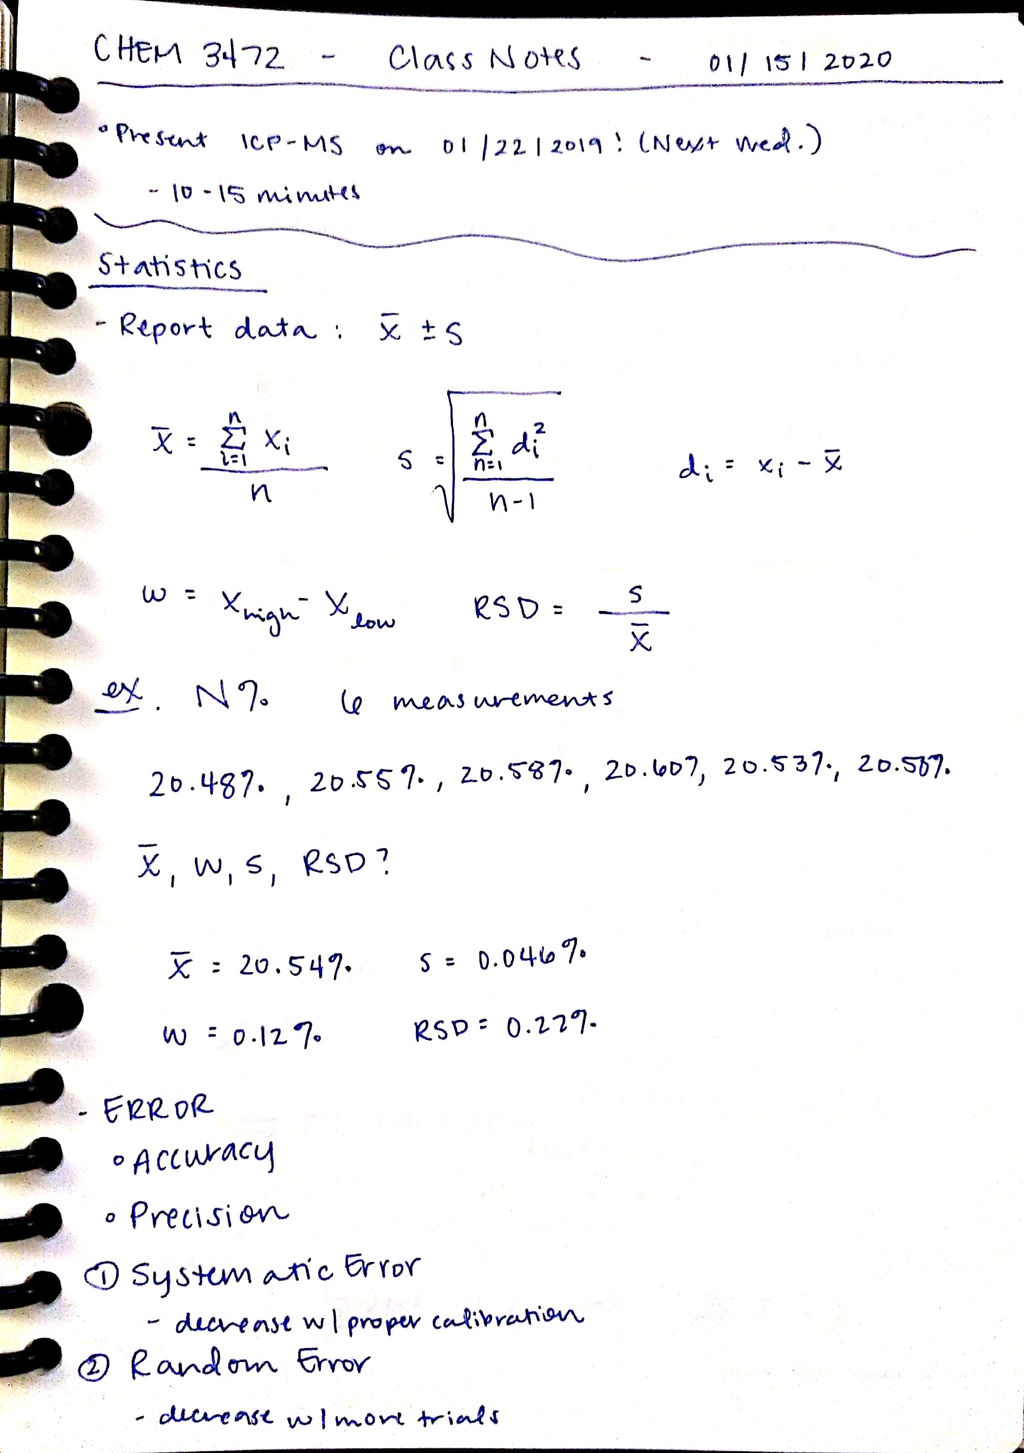 CHEM 3472 - Class Notes - 01/15/2020
° Present ICP-MS on 01/22/2019! (Next Wed.)
- 10-15 minutes
Statistics
- Report data : x̄ ± s
x̄ = Σ(i=1 to n) xᵢ / n   s = √(Σ(n=1 to n) dᵢ² / (n-1))   dᵢ = xᵢ - x̄
w = X_high - X_low   RSD = s / x̄
ex. N% 6 measurements
20.48%, 20.55%, 20.58%, 20.60%, 20.53%, 20.50%.
x̄, w, s, RSD?
x̄ = 20.54%   s = 0.046%
w = 0.12%   RSD = 0.22%
- ERROR
° Accuracy
° Precision
① Systematic Error
- decrease w/ proper calibration
② Random Error
- decrease w/ more trials